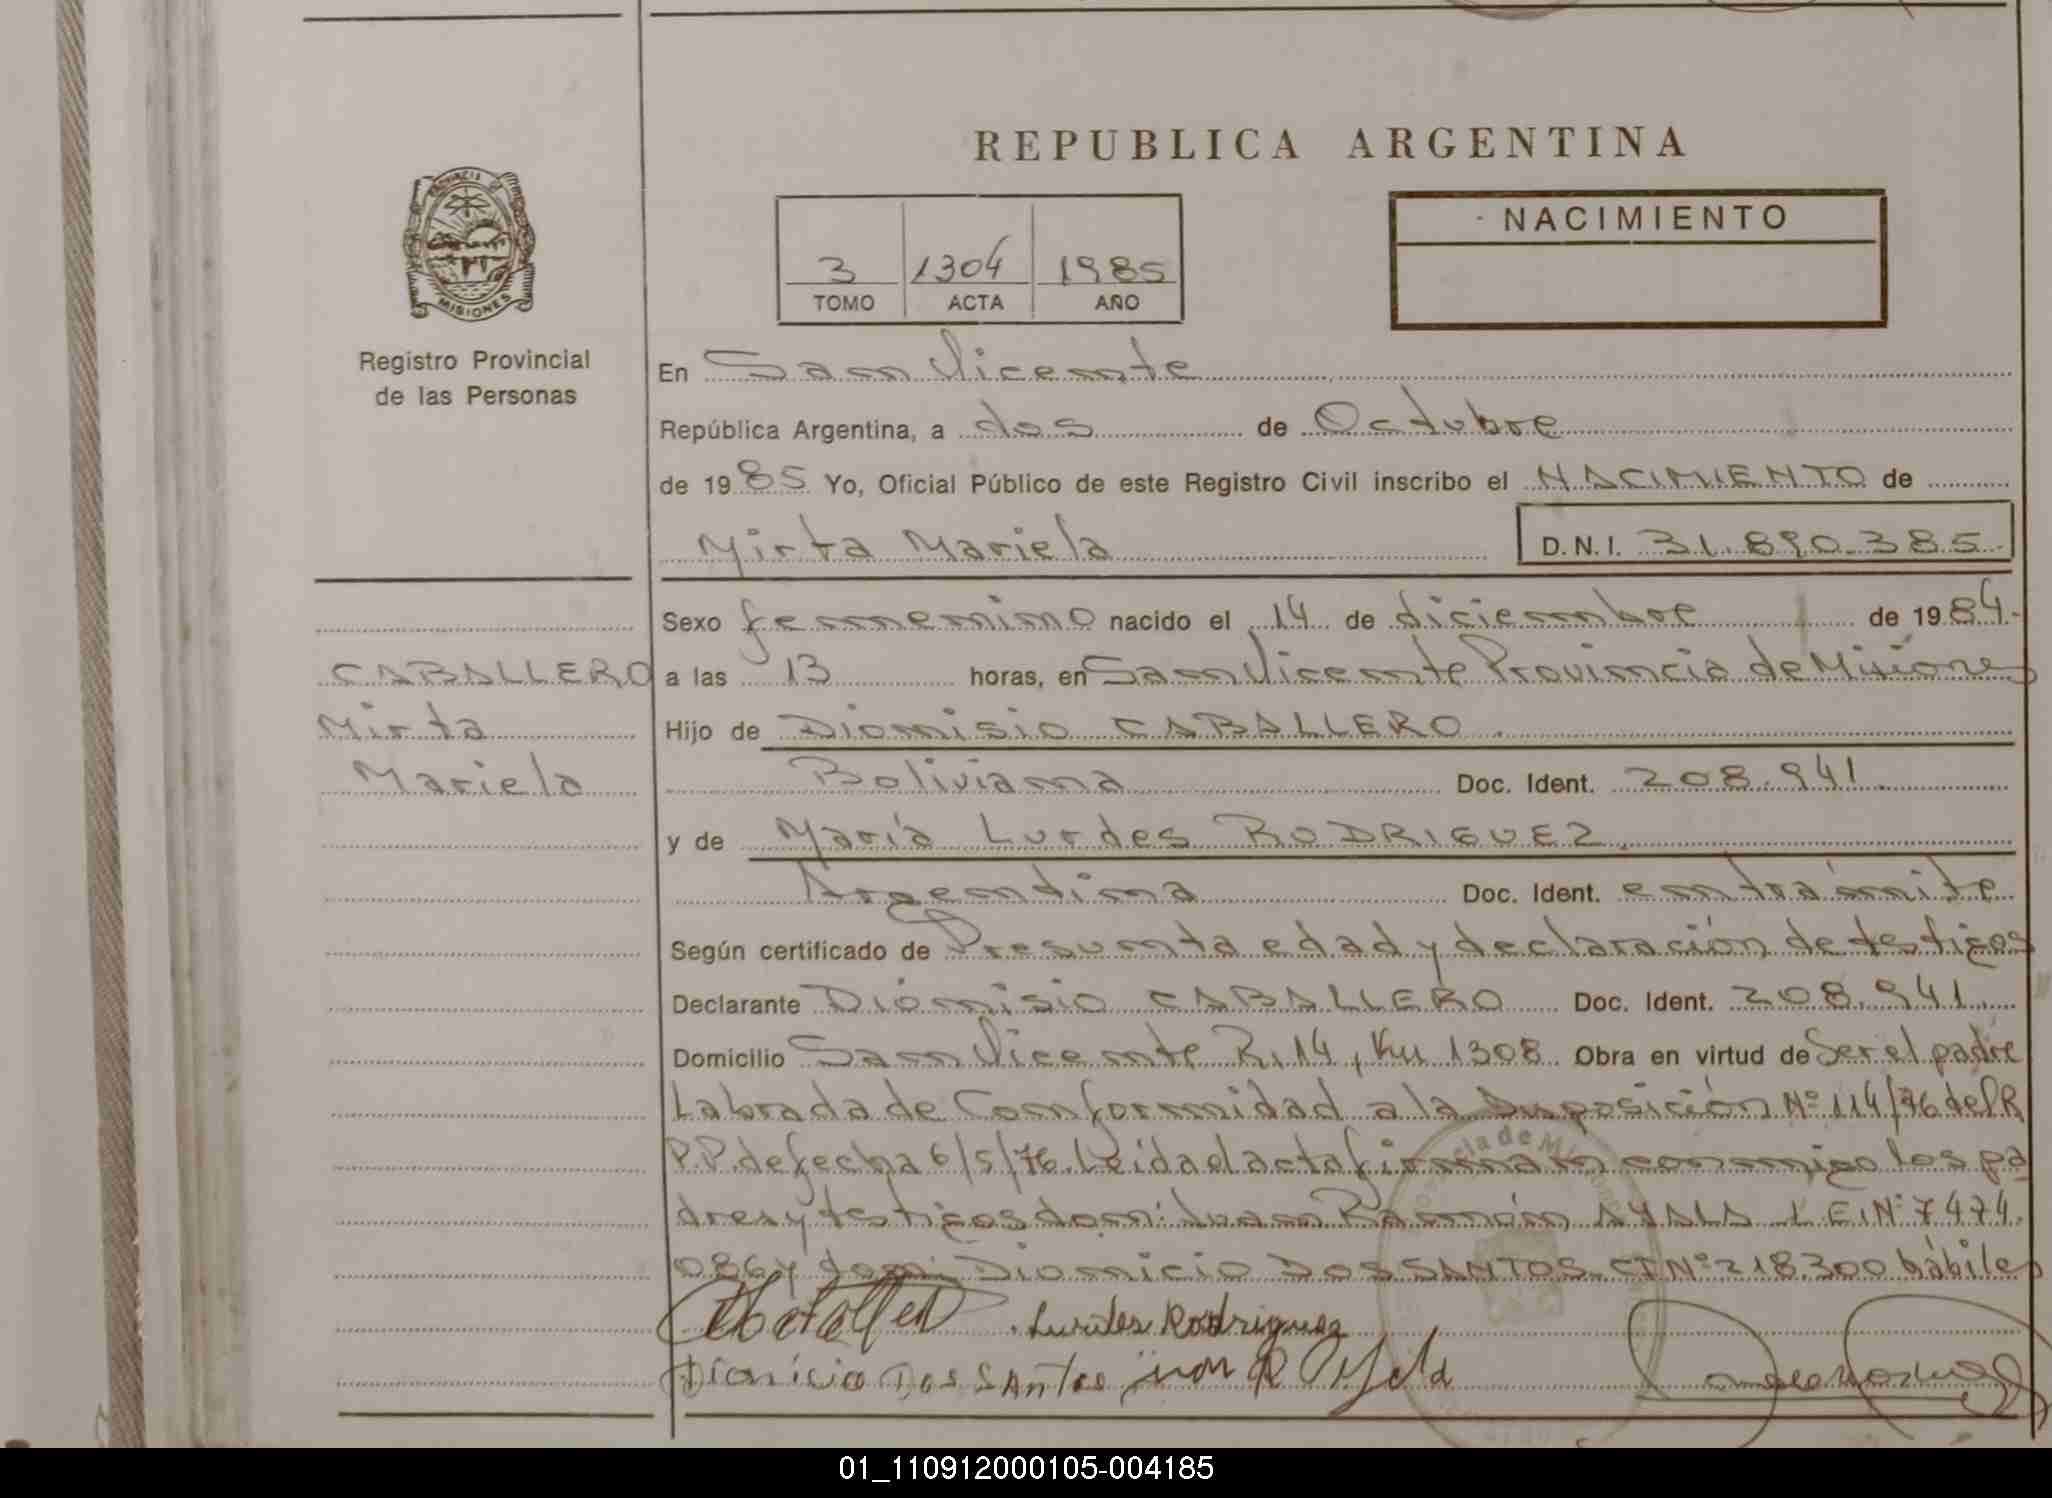 REPUBLICA ARGENTINA
PROVINCIA DE
MISIONES
Registro Provincial
de las Personas
3 1304 1985
TOMO ACTA AÑO
NACIMIENTO
En San Vicente
República Argentina, a dos de Octubre
de 1985 Yo, Oficial Público de este Registro Civil inscribo el NACIMIENTO de
Mirta Mariela D.N.I. 31.890.385
CABALLERO
Mirta
Mariela
Sexo femenino nacido el 14 de diciembre de 1984.-
a las 13 horas, en San Vicente Provincia de Misiones
Hijo de Dionisio CABALLERO.
Boliviana Doc. Ident. 208.941.
y de María Lurdes RODRIGUEZ.
Argentina Doc. Ident. en trámite
Según certificado de Presunta edad y declaración de testigos
Declarante Dionisio CABALLERO Doc. Ident. 208.941
Domicilio San Vicente R. 14, Km 1308 Obra en virtud de Ser el padre
Labrada de Conformidad a la Disposición Nº 114/76 del R
P.P. de fecha 6/5/76. Leida el acta firman conmigo los pa
dres y testigos don: Juan Ramón AYALA L.E. Nº 7474.
086 y don: Dionicio DOS SANTOS CI Nº 218.300 hábiles
Lurdes Rodriguez
Dionicio Dos Santos Juan R Ayala
01_110912000105-004185